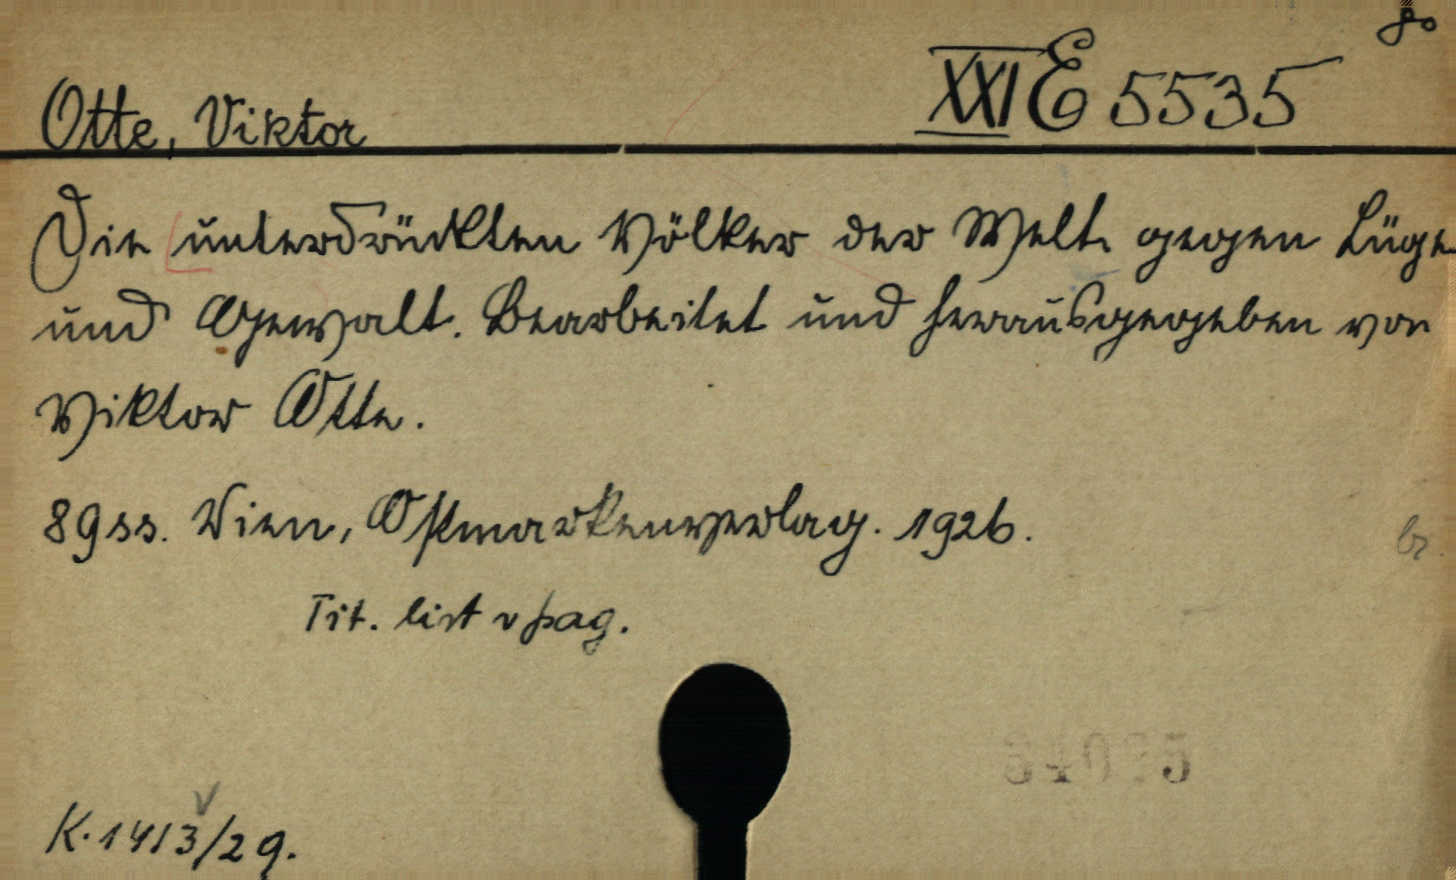 8°
XXI E 5535
Otte, Viktor
Die unterdrückten Völker der Welt gegen Lüge
und Gewalt. Bearbeitet und herausgegeben von
Viktor Otte.
89 ss. Wien, Ostmarkenverlag. 1926.
br
Tit. list v pag.
K. 1413/29.